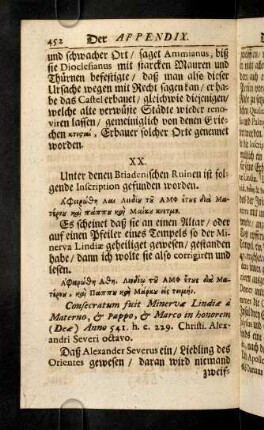 452 Der APPENDIX.
und schwacher Ort / saget Ammianus, biß
sie Diocletianus mit starcken Mauren und
Thürnen befestigte / daß man also dieser
Ursache wegen mit Recht sagen kan / er ha-
be das Castel erbauet / gleichwie diejenigen /
welche alte verwüste Städte wieder reno-
viren lassen / gemeiniglich von denen Grie-
chen Erbauer solcher Orte genennet
worden.
XX.
Unter denen Briadenischen Ruinen ist fol-
gende Inscription gefunden worden.
Es scheinet daß sie an einen Altar / oder
auf einen Pfeiler eines Tempels so der Mi-
nerva Lindiæ geheiliget gewesen / gestanden
habe / dann ich wolte sie also corrigiren und
lesen.
Consecratum fuit Minervæ Lindiæ à
Materno, & Pappo, & Marco in honorem
(Deæ) Anno 541. h. e. 229. Christi. Alex-
andri Severi octavo.
Daß Alexander Severus ein / Liebling des
Orientes gewesen / daran wird niemand
zweif-